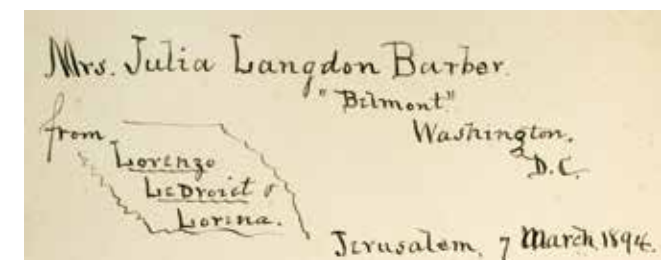 Mrs. Julia Langdon Barber.
"Belmont"
Washington,
D.C.
from
Lorenzo
LeDroict &
Lorena.
Jerusalem, 7 March, 1894.